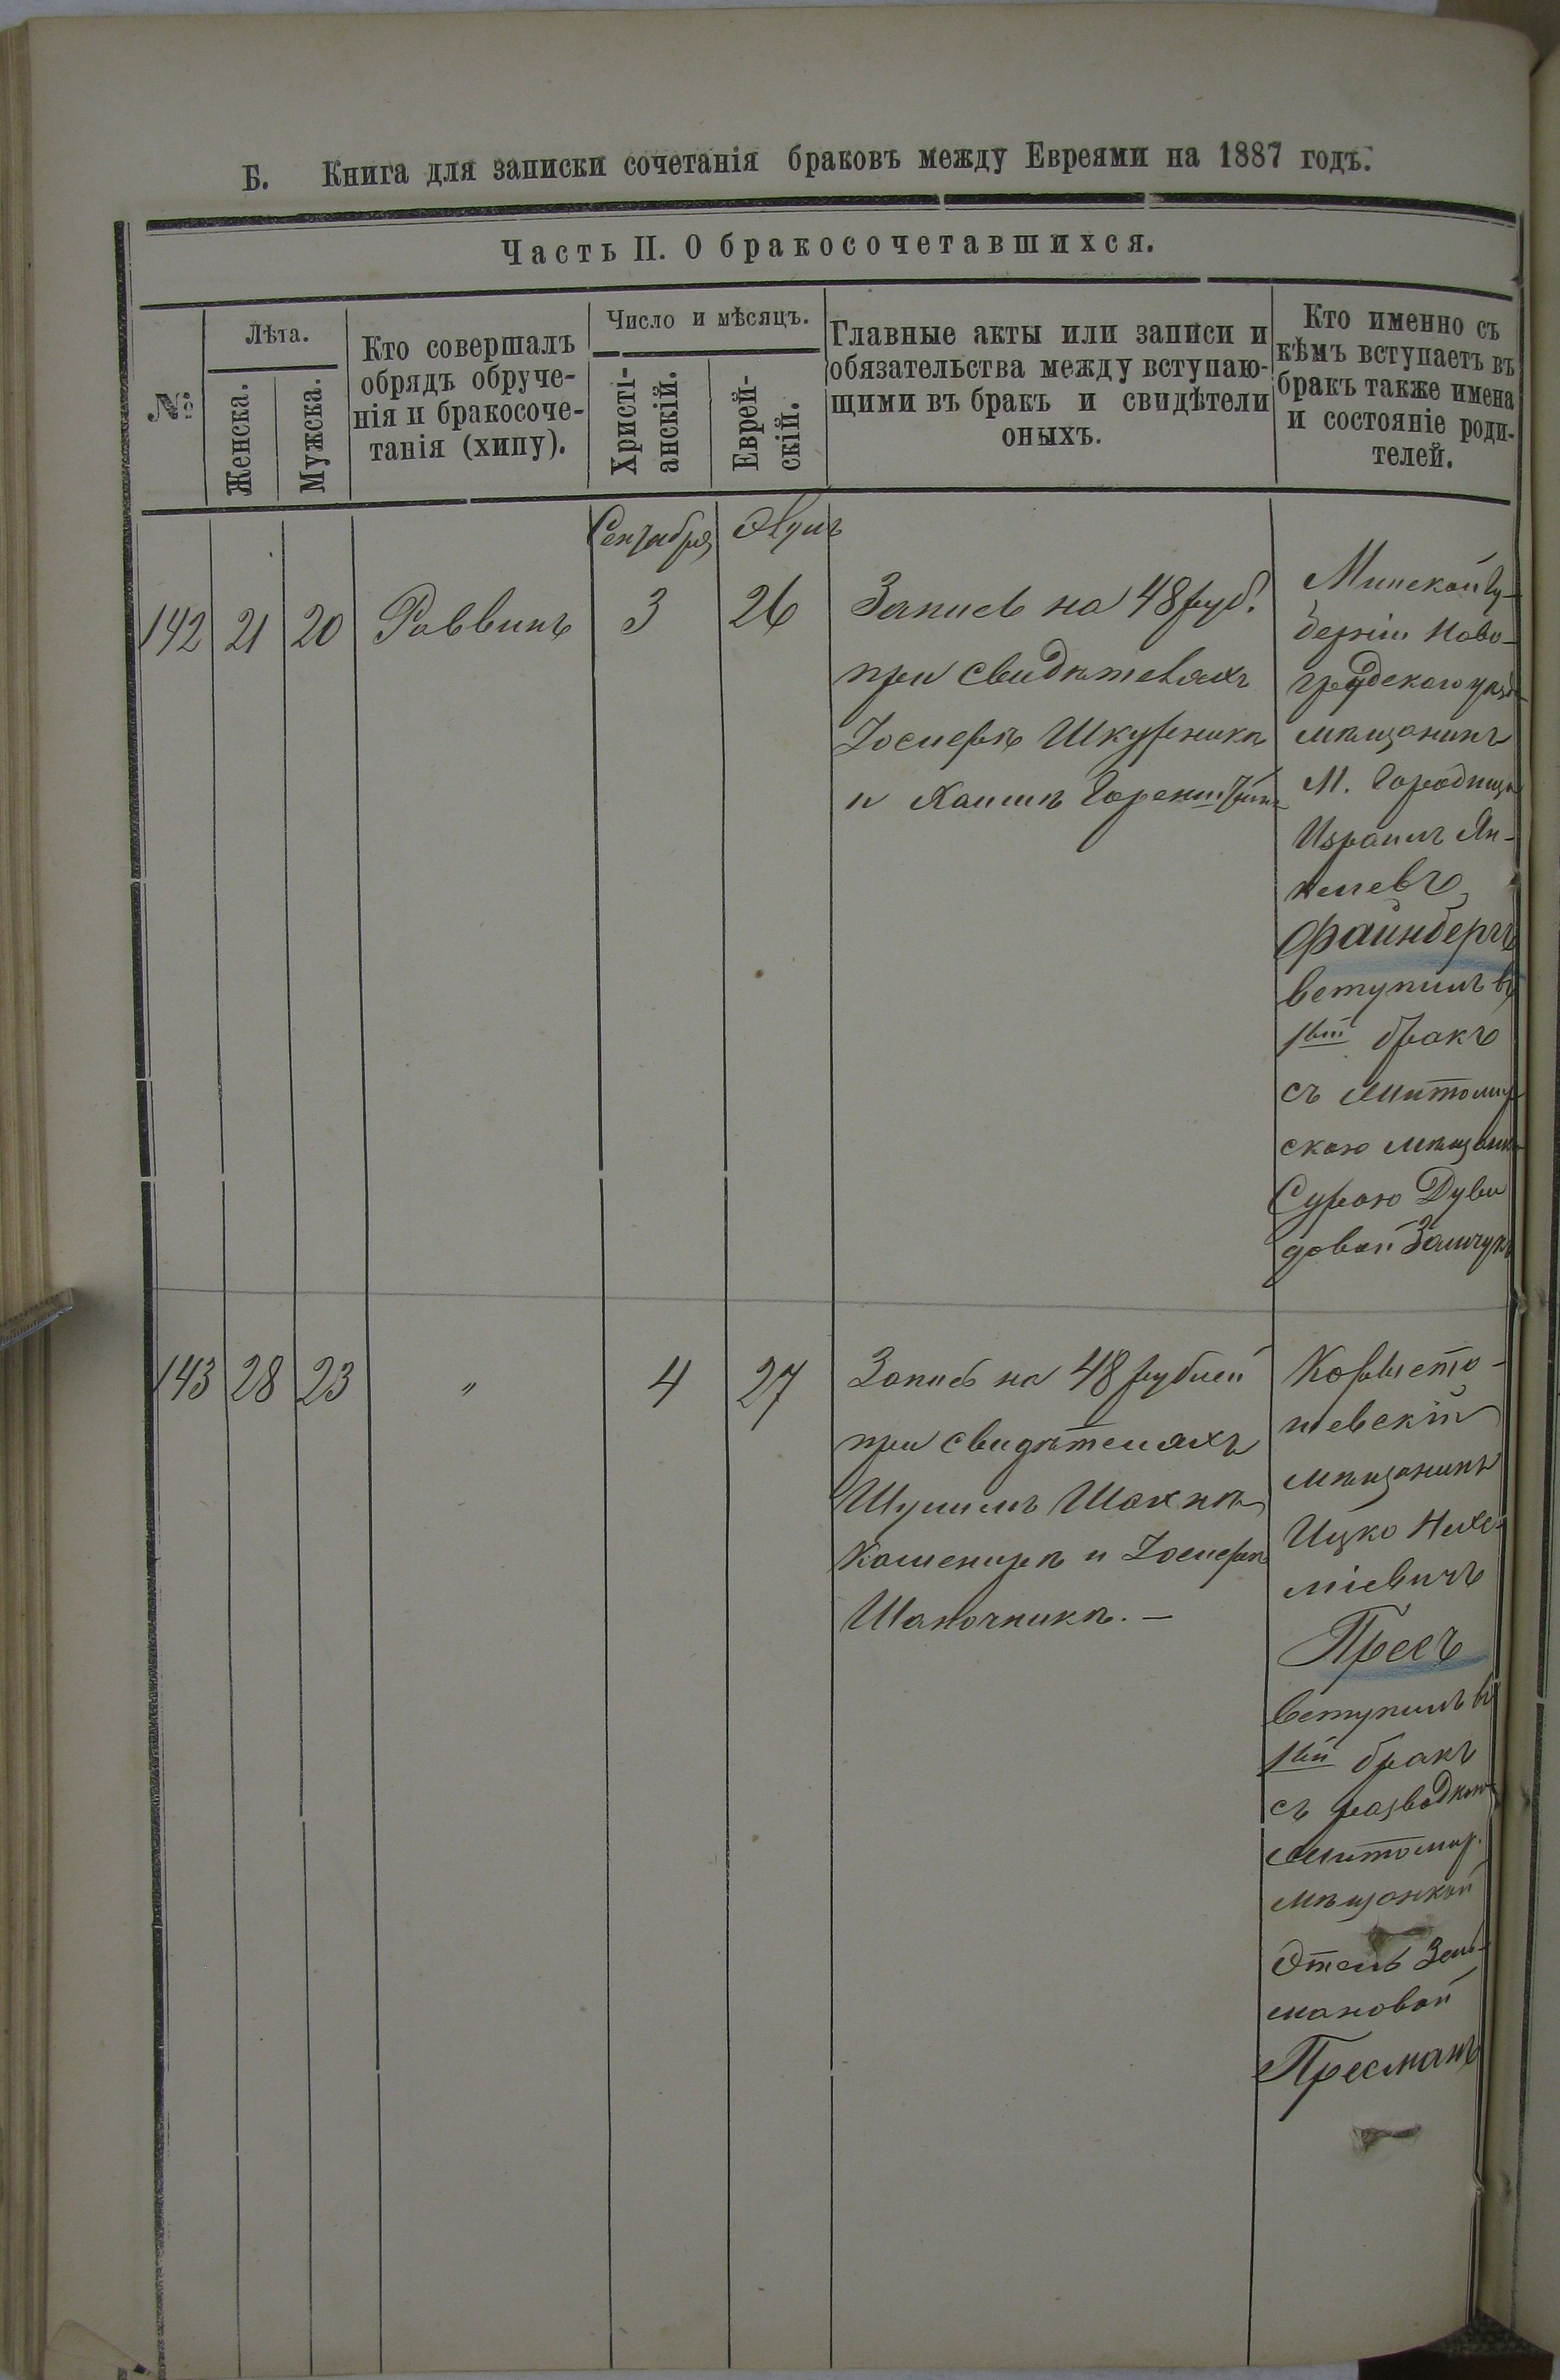 Б. Книга для записки сочетанія браковъ между Евреями на 1887 годъ.
Часть II. О бракосочетавшихся.
№
Лѣта.
Женска.
Мужска.
Кто совершалъ
обрядъ обруче-
нія и бракосоче-
танія (хипу).
Число и мѣсяцъ.
Христі-
анскій.
Еврей-
скій.
Главные акты или записи и
обязательства между вступаю-
щими въ бракъ и свидѣтели
оныхъ.
Кто именно съ
кѣмъ вступаетъ въ
бракъ также имена
и состояніе роди-
телей.
Сентября
Элулъ
142
21
20
Раввинъ
3
26
Запись на 48 руб.
при свидѣтеляхъ
Іосифѣ Шкурникѣ
и Хаимѣ Горенштейнѣ
Минской Гу-
берніи Ново-
грудскаго уѣзда
мѣщанинъ
М. Городища
Израиль Ян-
келевъ
Файнбергъ
вступилъ въ
1вый бракъ
съ Житомир
скою мѣщанк
Сурою Дуви
довой Замчукъ
143
28
23
"
4
27
Запись на 48 рублей
при свидѣтеляхъ
Шулимъ Шахнѣ
Кашеиирѣ и Іосифѣ
Шапочникѣ. —
Коросты-
шевскій
мѣщанинъ
Ицко Нихе-
міевичъ
Пресъ
вступилъ въ
1вый бракъ
съ разводкою
Житомир.
мѣщанкой
Этель Зель-
мановой
Пресманъ